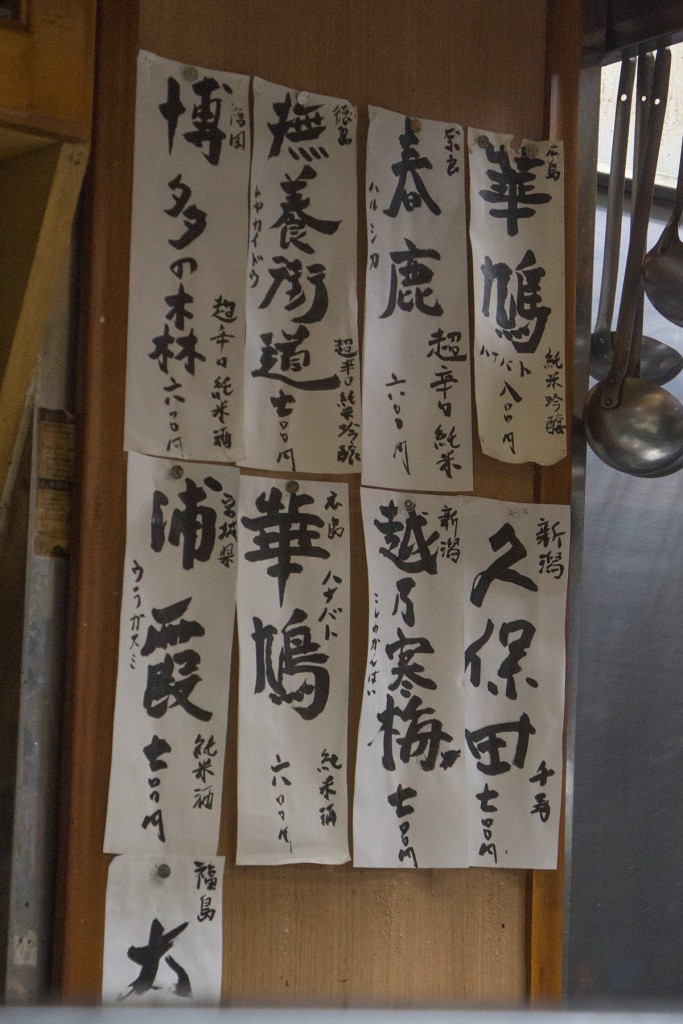 広島
華鳩
ハナバト
純米吟醸
八〇〇円
奈良
春鹿
ハルシカ
超辛口純米
六〇〇円
徳島
撫養街道
ムヤカイドウ
超辛口純米吟醸
七〇〇円
福岡
博多の森
超辛口純米酒
六〇〇円
新潟
久保田
千寿
七〇〇円
新潟
越乃寒梅
こしのかんばい
七〇〇円
広島
華鳩
ハナバト
純米酒
六〇〇円
宮城県
浦霞
ウラガスミ
純米酒
七〇〇円
福島
大